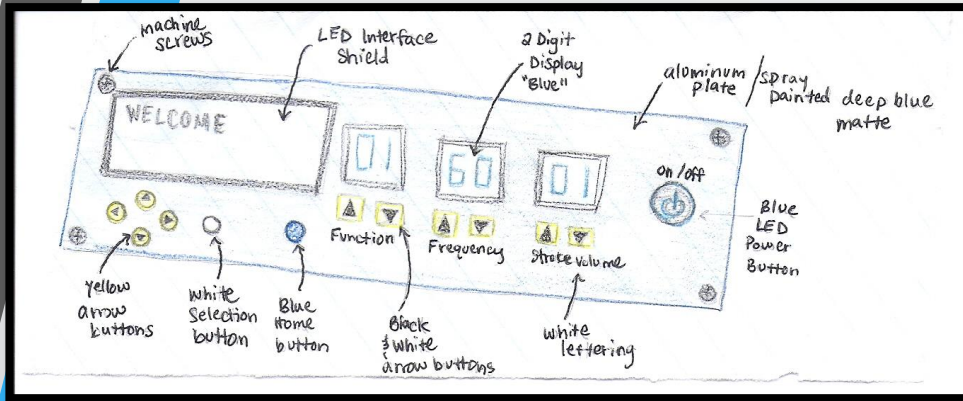 machine
screws
LED Interface
Shield
2 Digit
Display
"Blue"
aluminum
plate /spray
painted deep blue
matte
WELCOME
01
60
01
on/off
Function
Frequency
Stroke Volume
Blue
LED
Power
Button
yellow
arrow
buttons
white
Selection
button
Blue
Home
button
Black
& white
arrow buttons
white
lettering